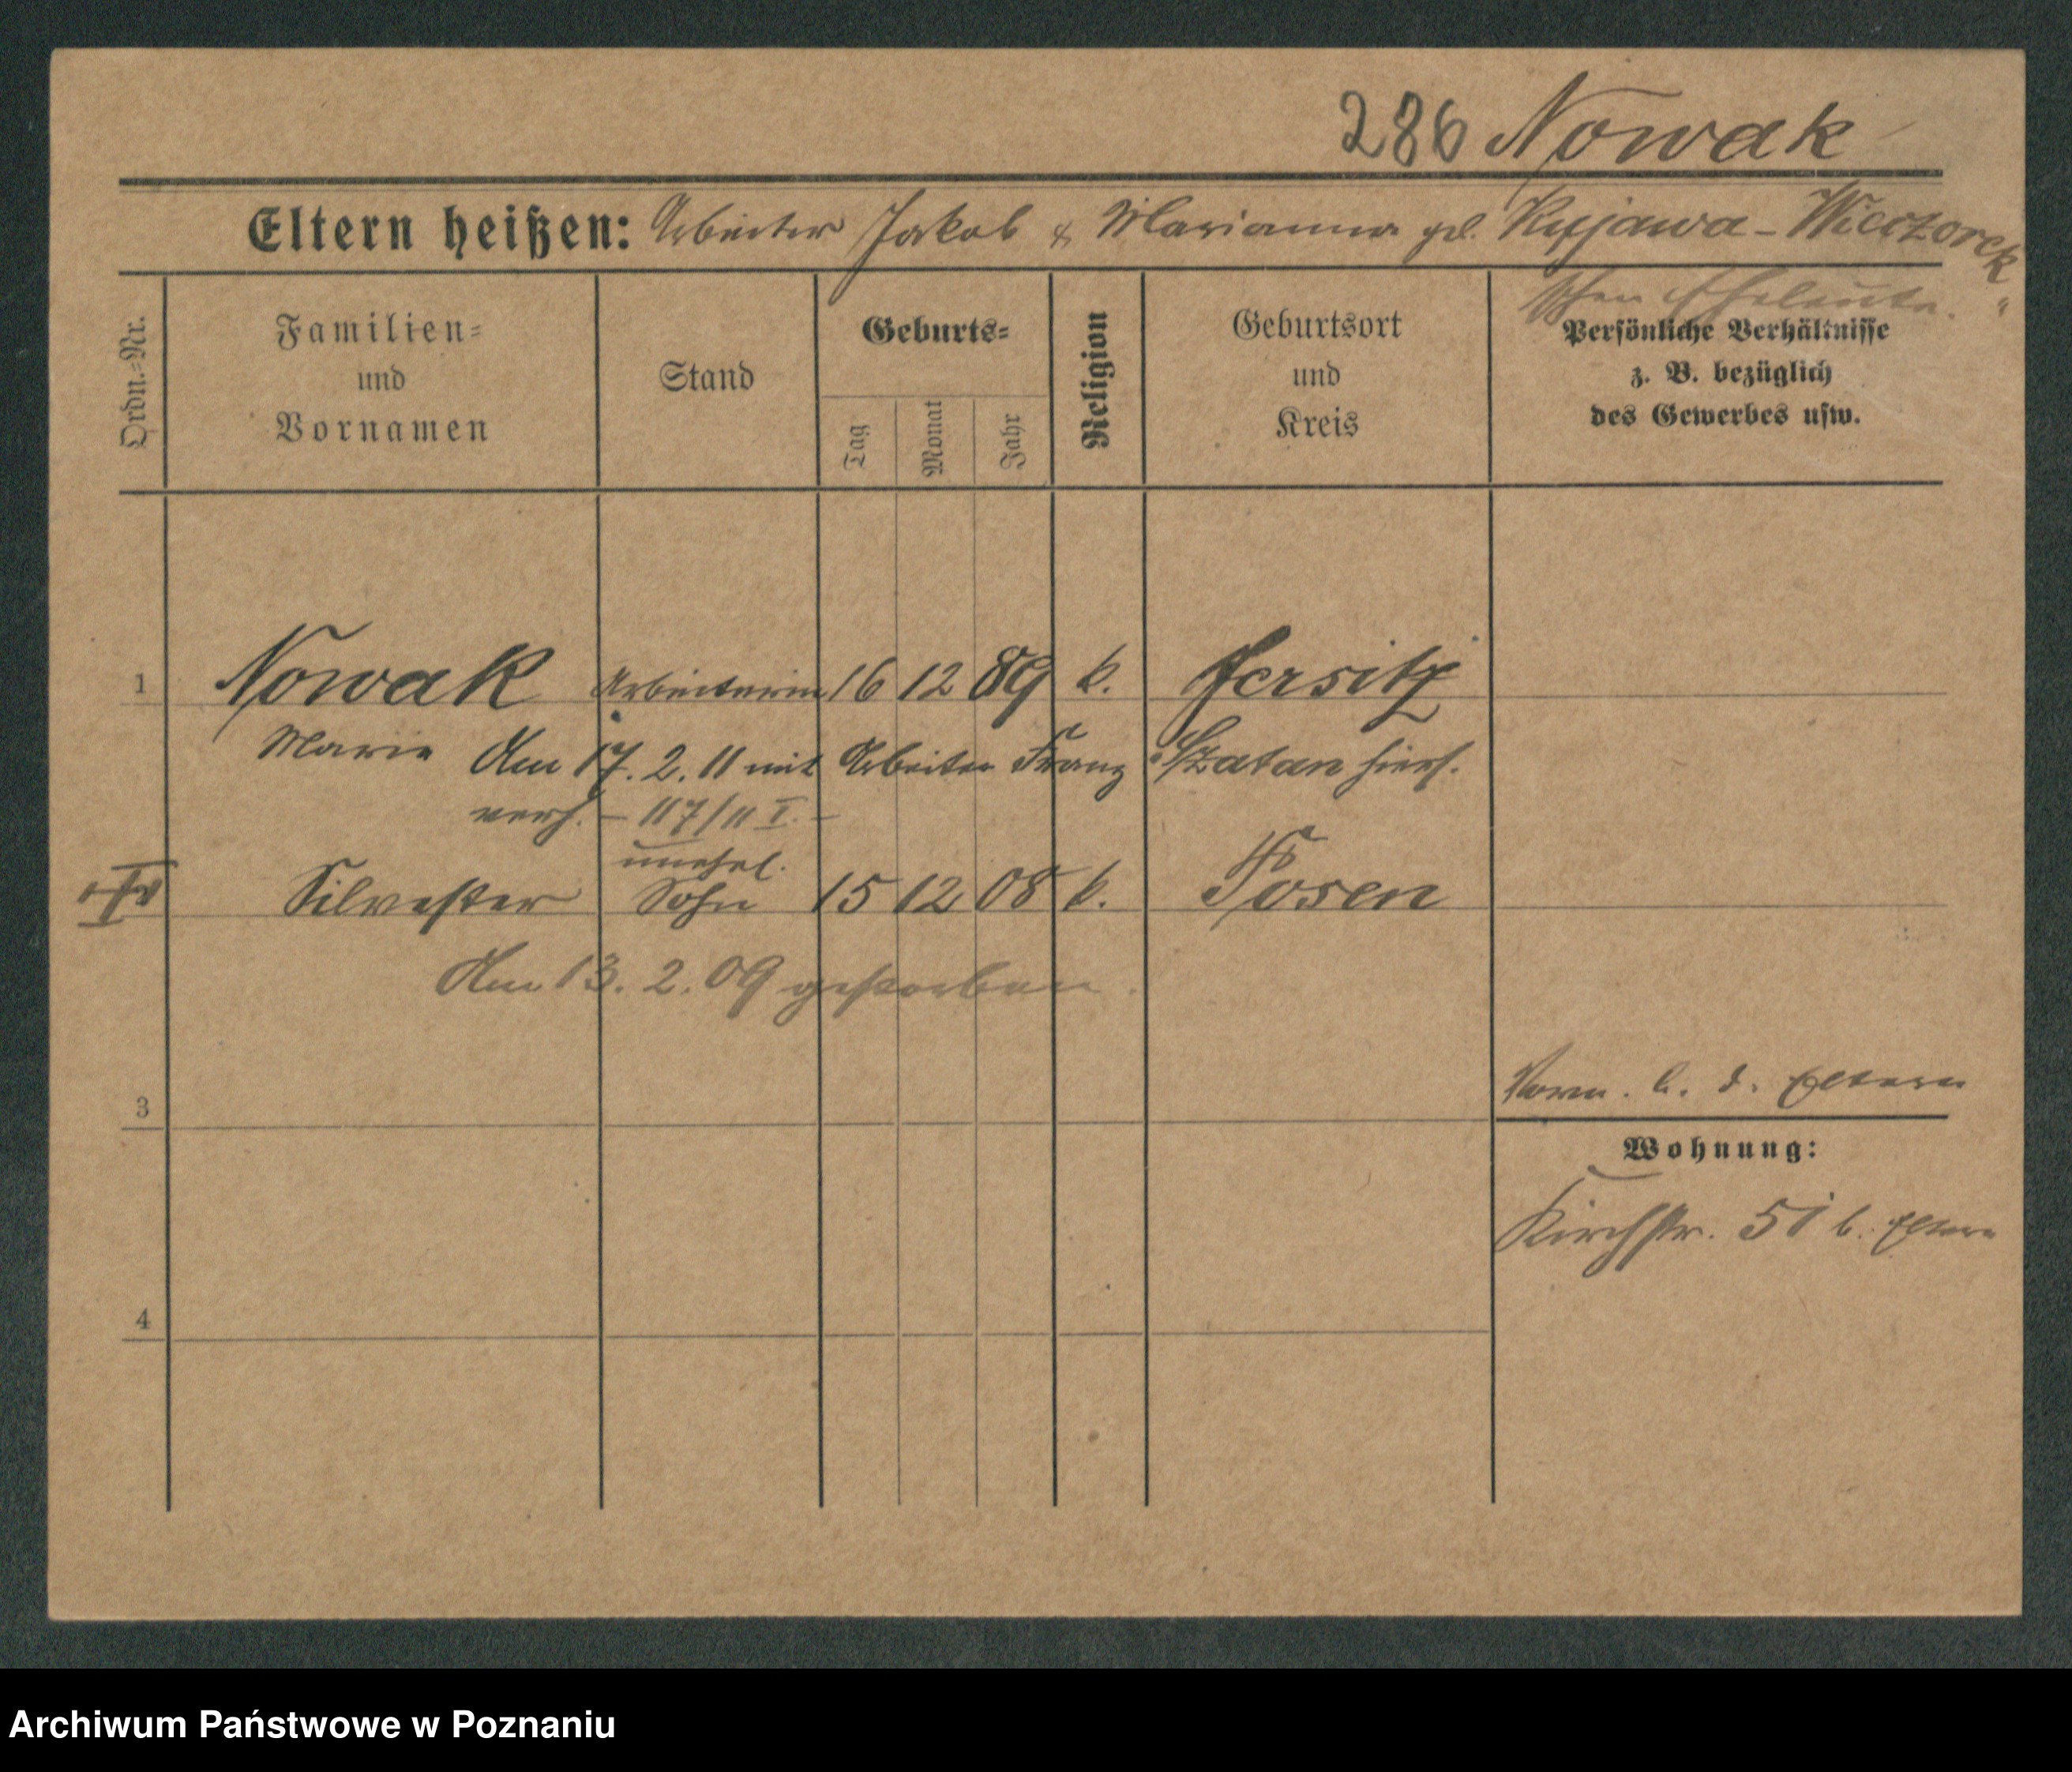 286 Nowak
Eltern heißen: Arbeiter Jakob & Marianna gb. Kujawa-Wieczorek"
schen Eheleute.
Ordn.-Nr.
Familien-
und
Vornamen
Stand
Geburts-
Tag
Monat
Jahr
Religion
Geburtsort
und
Kreis
Persönliche Verhältnisse
z. B. bezüglich
des Gewerbes usw.
1 Nowak Arbeiterin 16 12 89 k. Jersitz
Marie Am 17. 2. 11 mit Arbeiter Franz Szatan hiers.
verh. – 117/11 I. –
unehel.
Silvester Sohn 15 12 08 k. Posen
Am 13. 2. 09 gestorben.
3
Vorm. b. d. Eltern
Wohnung:
Kirchstr. 51 b. Eltern
4
Archiwum Państwowe w Poznaniu